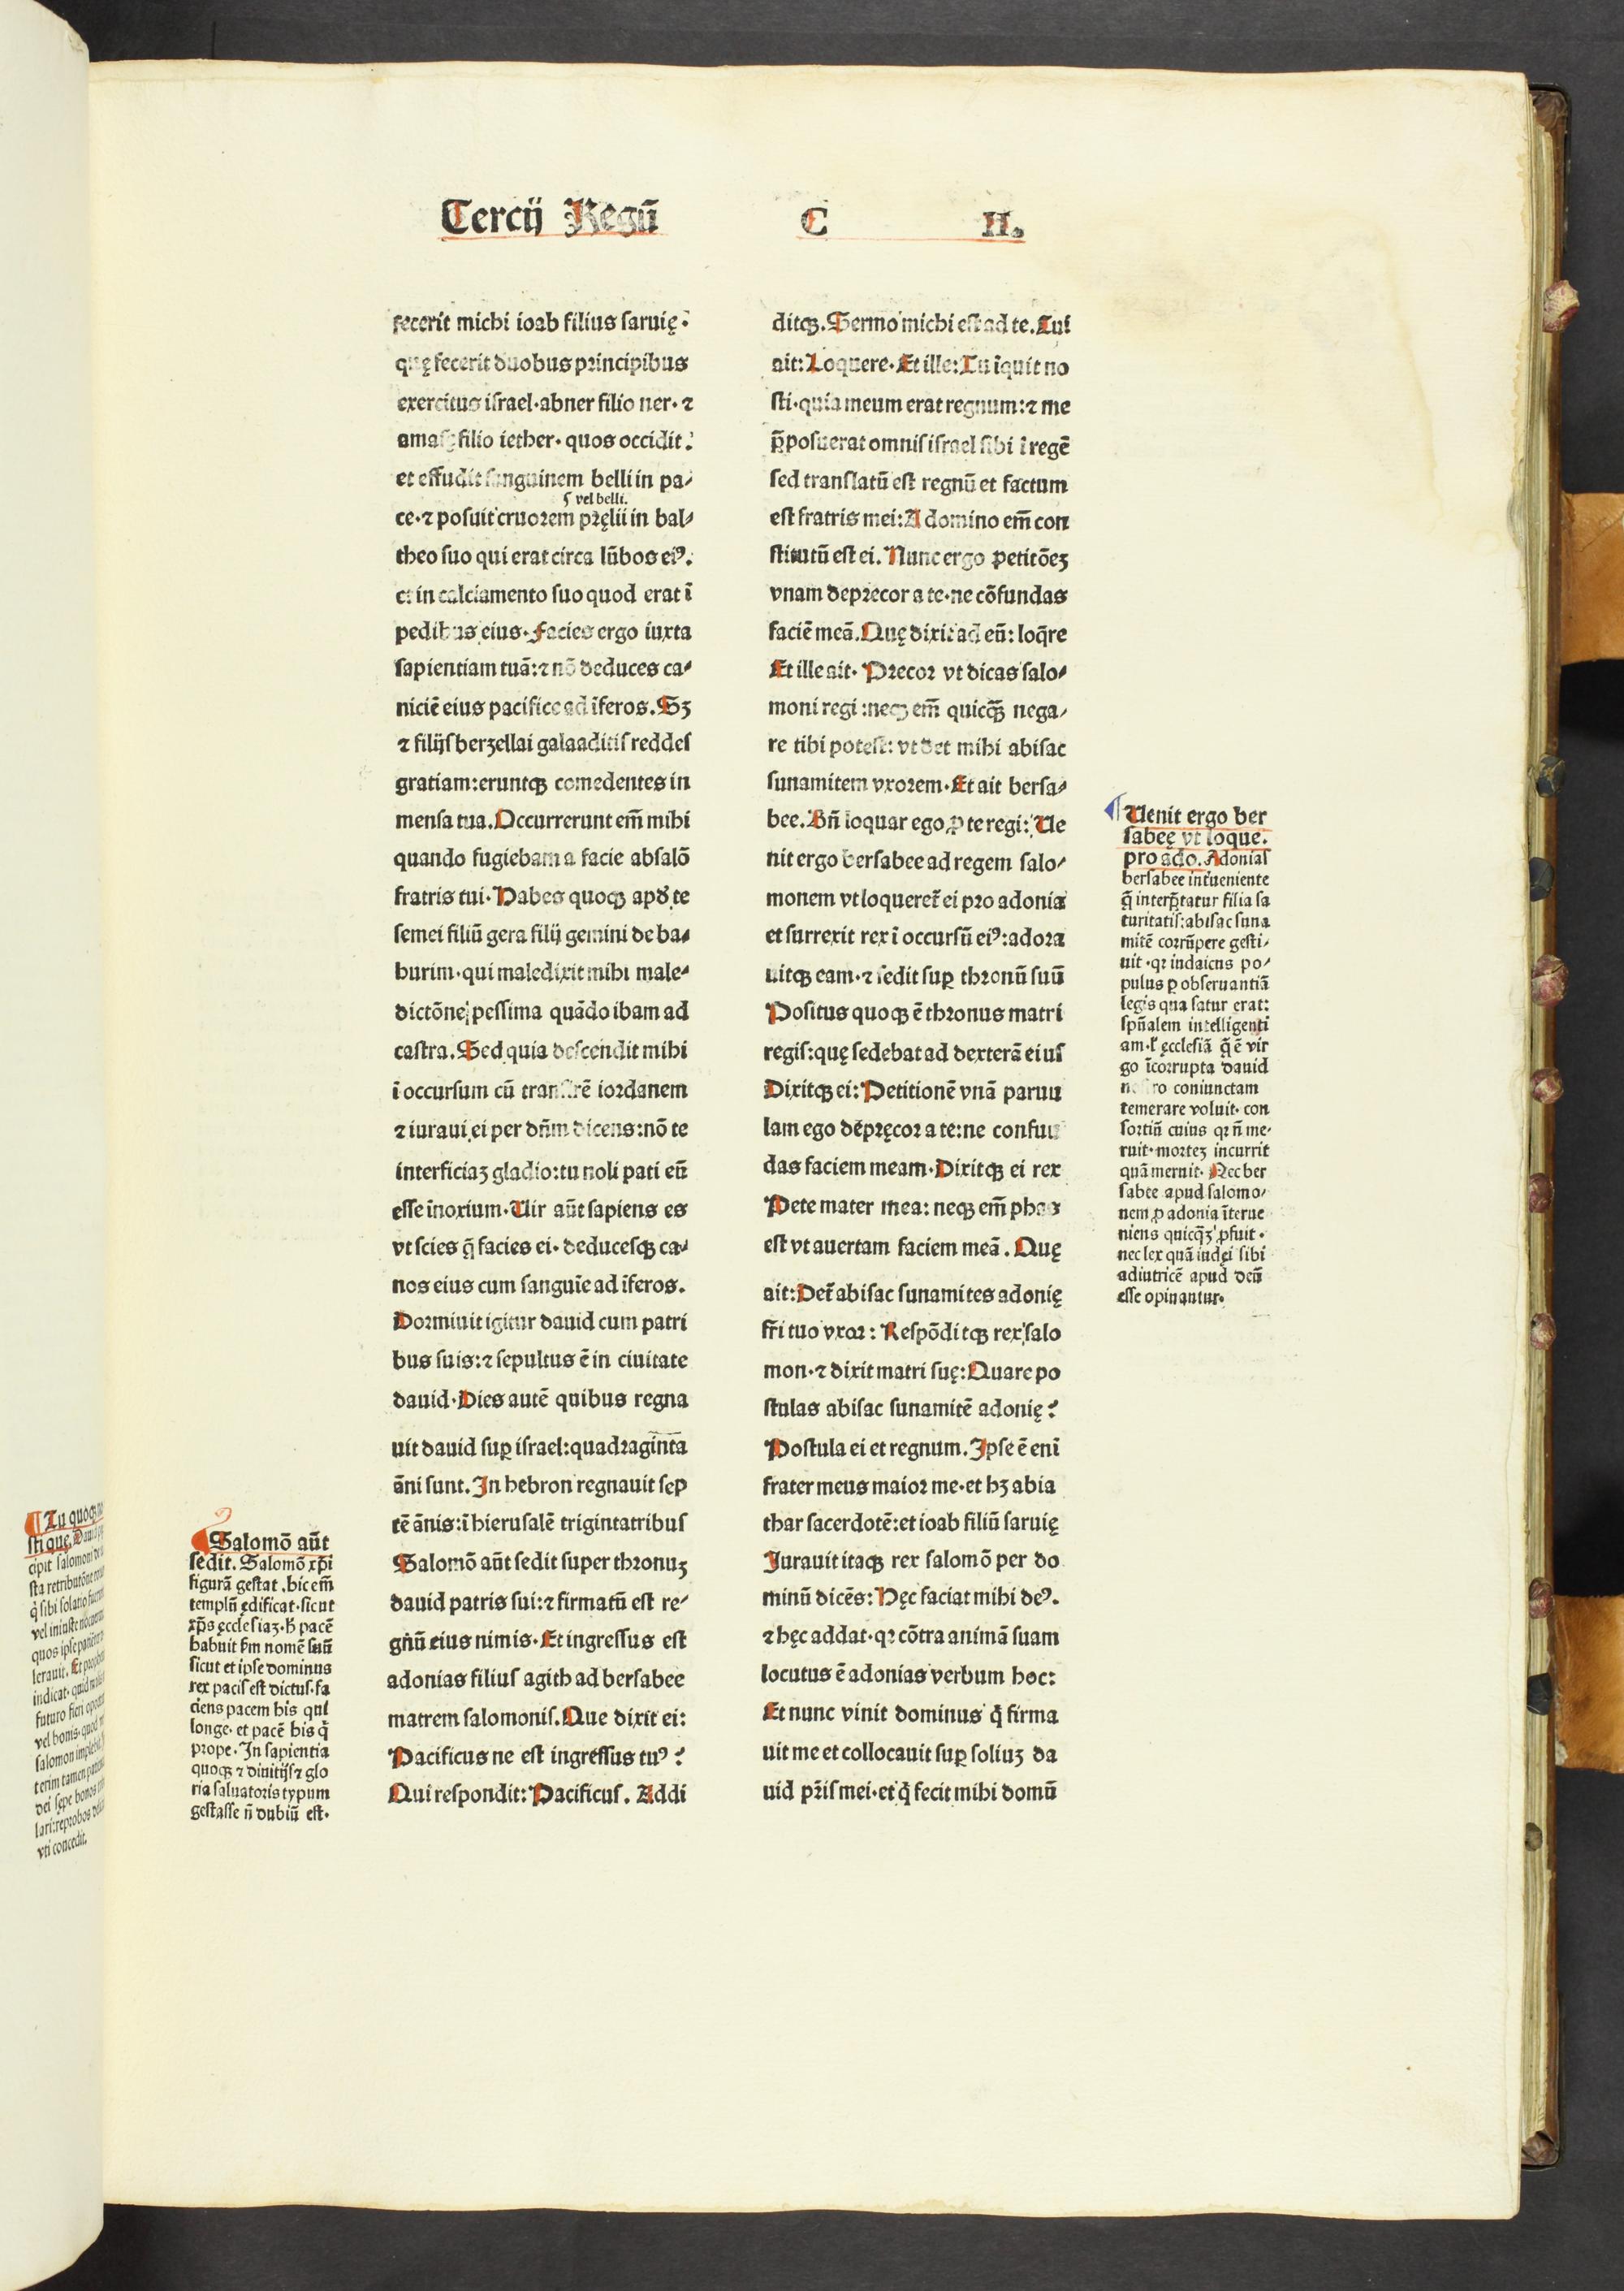 Tercij Regũ
C II.
fecerit michi ioab filius ſaruię:
quę fecerit duobus principibus
exercitus iſrael·abner filio ner·⁊
amaſę filio iether·quos occidit:
et effudit ſanguinem belli in pa⸗
ſ vel belli.
ce·⁊ poſuit cruorem prȩlii in bal⸗
theo ſuo qui erat circa lũbos eiꝰ.
et in calciamento ſuo quod erat ĩ
pedibus eius·Facies ergo iuxta
ſapientiam tuã:⁊ nõ deduces ca⸗
niciẽ eius pacifice ad ĩferos.Sꝫ
⁊ filijſ berzellai galaaditiſ reddeſ
gratiam:eruntqꝫ comedentes in
menſa tua.Occurrerunt em̃ mihi
quando fugiebam a facie abſalõ
fratris tui·Habes quoqꝫ apđ te
ſemei filiũ gera filij gemini de ba⸗
burim·qui maledixit mihi male⸗
dictõne peſſima quãdo ibam ad
caſtra.Sed quia deſcendit mihi
ĩ occurſum cũ tranſirẽ iordanem
⁊ iuraui ei per dñm dicens:nõ te
interficiaꝫ gladio:tu noli pati eũ
eſſe ĩnoxium·Uir aũt ſapiens es
vt ſcies q̃ facies ei·deduceſqꝫ ca⸗
nos eius cum ſanguĩe ad ĩferos.
Dormiuit igitur dauid cum patri
bus ſuis:⁊ ſepultus ẽ in ciuitate
dauid·Dies autẽ quibus regna
uit dauid ſuꝑ iſrael:quadragĩnta
ãni ſunt.In hebron regnauit ſep
tẽ ãnis:ĩ hieruſalẽ trigintatribuſ
Salomõ aũt ſedit ſuper thronuꝫ
dauid patris ſui:⁊ firmatũ eſt re⸗
gnũ eius nimis·Et ingreſſus eſt
adonias filiuſ agith ad berſabee
matrem ſalomoniſ.Que dixit ei:
Pacificus ne eſt ingreſſus tuꝰ?
Qui reſpondit:Pacificuſ. Addi
ditqꝫ.Sermo michi eſt ad te.Cui
ait:Loquere·Et ille:Tu ĩquit no
ſti·quia meum erat regnum:⁊ me
p̃poſuerat omniſ iſrael ſibi ĩ regẽ
ſed tranſlatũ eſt regnũ et factum
eſt fratris mei:A domino em̃ con
ſtitutũ eſt ei.Nunc ergo petitõeꝫ
vnam deprecor a te·ne cõfundas
faciẽ meã.Quę dixit ad eũ:loq̃re
Et ille ait·Precor vt dicas ſalo⸗
moni regi:neqꝫ em̃ quicq̃ꝫ nega⸗
re tibi poteſt:vt det mihi abiſac
ſunamitem vxorem·Et ait berſa⸗
bee.Bñ loquar ego ꝓ te regi:Ue
nit ergo berſabee ad regem ſalo⸗
monem vt loqueret̃ ei pro adonia
et ſurrexit rex ĩ occurſũ eiꝰ:adora
uitqꝫ eam·⁊ ſedit ſuꝑ thronũ ſuũ
Poſitus quoqꝫ ẽ thronus matri
regiſ:quę ſedebat ad dexterã eiuſ
Dixitqꝫ ei:Petitionẽ vnã paruu
lam ego deprȩcor a te:ne confun
das faciem meam·Dixitqꝫ ei rex
Pete mater mea:neqꝫ em̃ phas
eſt vt auertam faciem meã. Quę
ait:Det̃ abiſac ſunamites adonię
fr̃i tuo vxor:Reſpõditqꝫ rex ſalo
mon·⁊ dixit matri ſuę:Quare po
ſtulas abiſac ſunamitẽ adonię?
Poſtula ei et regnum.Ipſe ẽ enĩ
frater meus maior me·et hꝫ abia
thar ſacerdotẽ:et ioab filiũ ſaruię
Iurauit itaqꝫ rex ſalomõ per do
minũ dicẽs:Hęc faciat mihi deꝰ.
⁊ hęc addat·qꝛ cõtra animã ſuam
locutus ẽ adonias verbum hoc:
Et nunc vinit dominus q̃ firma
uit me et collocauit ſuꝑ ſoliuꝫ da
uid pr̃iſ mei·et q̃ fecit mihi domũ
Uenit ergo ber
ſabeę vt loque.
pro ado. Adoniaſ
berſabee inťueniente
q̃ interp̃tatur filia ſa
turitatiſ:abiſac ſuna
mitẽ corrũpere geſti⸗
uit·qꝛ iudaicus po⸗
pulus ꝑ obſeruantiã
legis qua ſatur erat:
ſpũalem intelligenti
am·ł ęccleſiã q̃ ẽ vir
go ĩcorrupta dauid
noſtro coniunctam
temerare voluit·con
ſortiũ cuius qꝛ ñ me⸗
ruit·morteꝫ incurrit
quã meruit·Nec ber
ſabee apud ſalomo⸗
nem ꝓ adonia ĩterue
niens quicq̃ꝫ ꝓfuit·
nec lex quã iudęi ſibi
adiutricẽ apud deũ
eſſe opinantur.
Salomõ aũt
ſedit. Salomõ xp̃i
figurã geſtat.hic em̃
templũ ędificat·ſicut
xp̃s ęccleſiaꝫ·h̃ pacẽ
habuit ſm̃ nomẽ ſuũ
ſicut et ipſe dominus
rex paciſ eſt dictuſ·fa
ciens pacem his qui
longe·et pacẽ his q̃
prope·In ſapientia
quoqꝫ ⁊ diuitijſ ⁊ glo
ria ſaluatoris typum
geſtaſſe ñ dubiũ eſt·
Tu quoqꝫ
ſti que.
cipit ſalomoni
ſta retributõne
q̃ ſibi ſolatio
vel iniuſte
quos ipſe
lerauit. Et
indicat·quid
futuro fieri
vel bonis·quod
ſalomon
terim tamen
dei ſępe bonos
lari:reprobos
vti concedit.